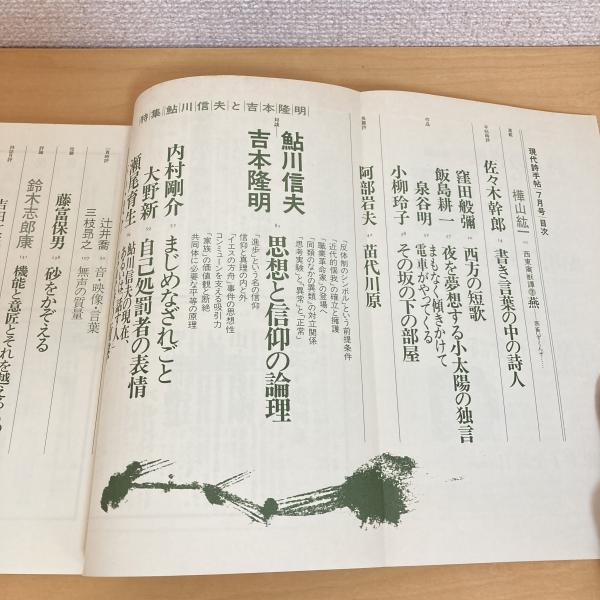 現代詩手帖・7月号・目次
連載
樺山紘一
西東禽獣譚
燕
佐々木幹郎
書き言葉の中の詩人
作品
窪田般彌
西方の短歌
飯島耕一
夜を夢想する小太陽の独言
泉谷明
まもなく傾きかけて
電車がやってくる
小柳玲子
その坂の下の部屋
阿部岩夫
苗代川原
特集鮎川信夫と吉本隆明
対談
鮎川信夫
吉本隆明
思想と信仰の論理
「反体制のシンボル」という前提条件
「近代的個我」の確立と擁護
「職業革命家」の登場
「同類のなかの異類」の対立関係
「思考実験」と「異常」と「正常」
「進歩」という名の信仰
信仰と真理の内と外
「イエスの方舟」事件の思想性
コンミューンを支える吸引力
「家族」の価値観と断絶
共同体に必要な平等の原理
内村剛介
まじめなざれごと
大野新
自己処罰者の表情
瀬尾育生
鮎川信夫の現在、
辻井喬
音・映像・言葉
三枝昂之
無声の質量
藤富保男
砂をかぞえる
鈴木志郎康
機能と意匠とそれを越える